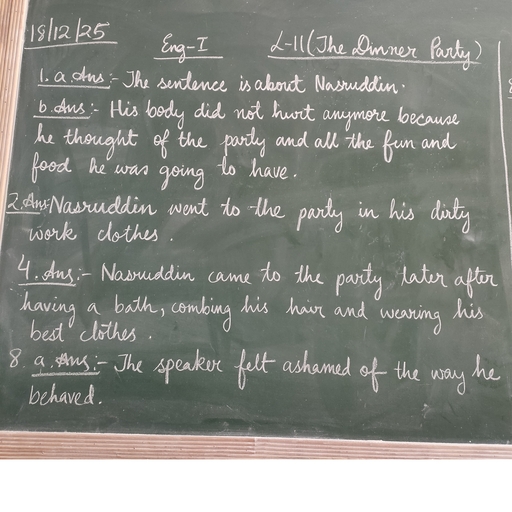 18/12/25
Eng-I L-11(The Dinner Party)
1. a. Ans:- The sentence is about Nasruddin.
b. Ans:- His body did not hurt anymore because
he thought of the party and all the fun and
food he was going to have.
2. Ans:- Nasruddin went to the party in his dirty
work clothes.
4. Ans:- Nasruddin came to the party later after
having a bath, combing his hair and wearing his
best clothes.
8. a. Ans:- The speaker felt ashamed of the way he
behaved.